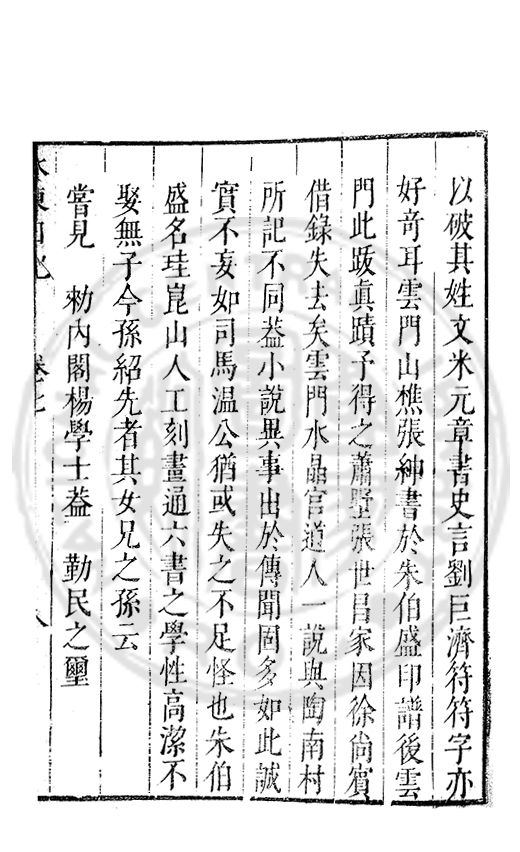 以破其姓文米元章書史言劉巨濟符符字亦
好奇耳雲門山樵張紳書於朱伯盛印譜後雲
門此跋真蹟予得之蕭墅張世昌家因徐尚賓
借錄失去矣雲門水晶宮道人一說與陶南村
所記不同葢小說異事出於傳聞固多如此誠
實不妄如司馬温公猶或失之不足怪也朱伯
盛名珪崑山人工刻畫通六書之學性高潔不
娶無子今孫紹先者其女兄之孫云
嘗見　勑內閣楊學士葢　勤民之璽
卷七
八